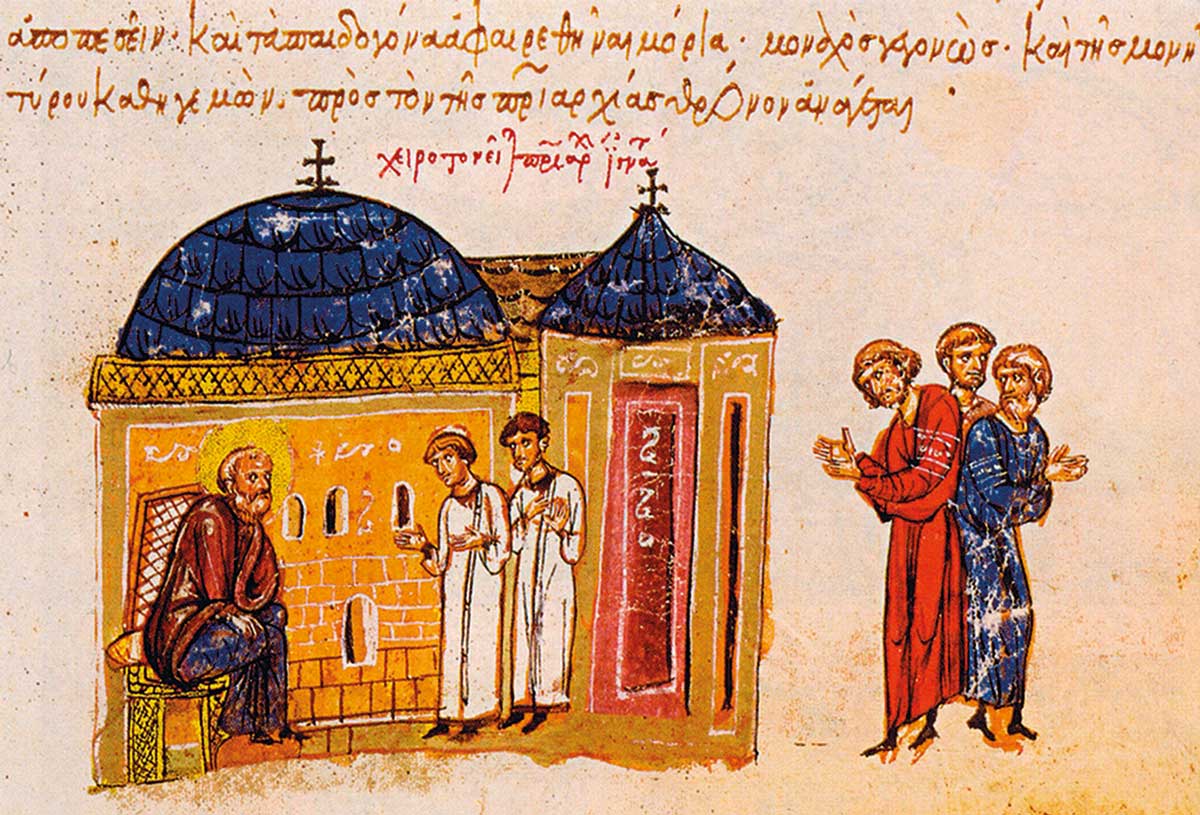 ἀποπεσεῖν· καὶ τὰ παιδογόνα ἀφαιρεθῆναι μόρια· μοναχὸς γεγονὼς· καὶ τῆς μονῆ
τύρου καθηγεμὼν· πρὸς τὸν τῆς πριαρχίας θρόνον ἀνάγεται
χειροτονεῖ πριαρχ ἰγνα